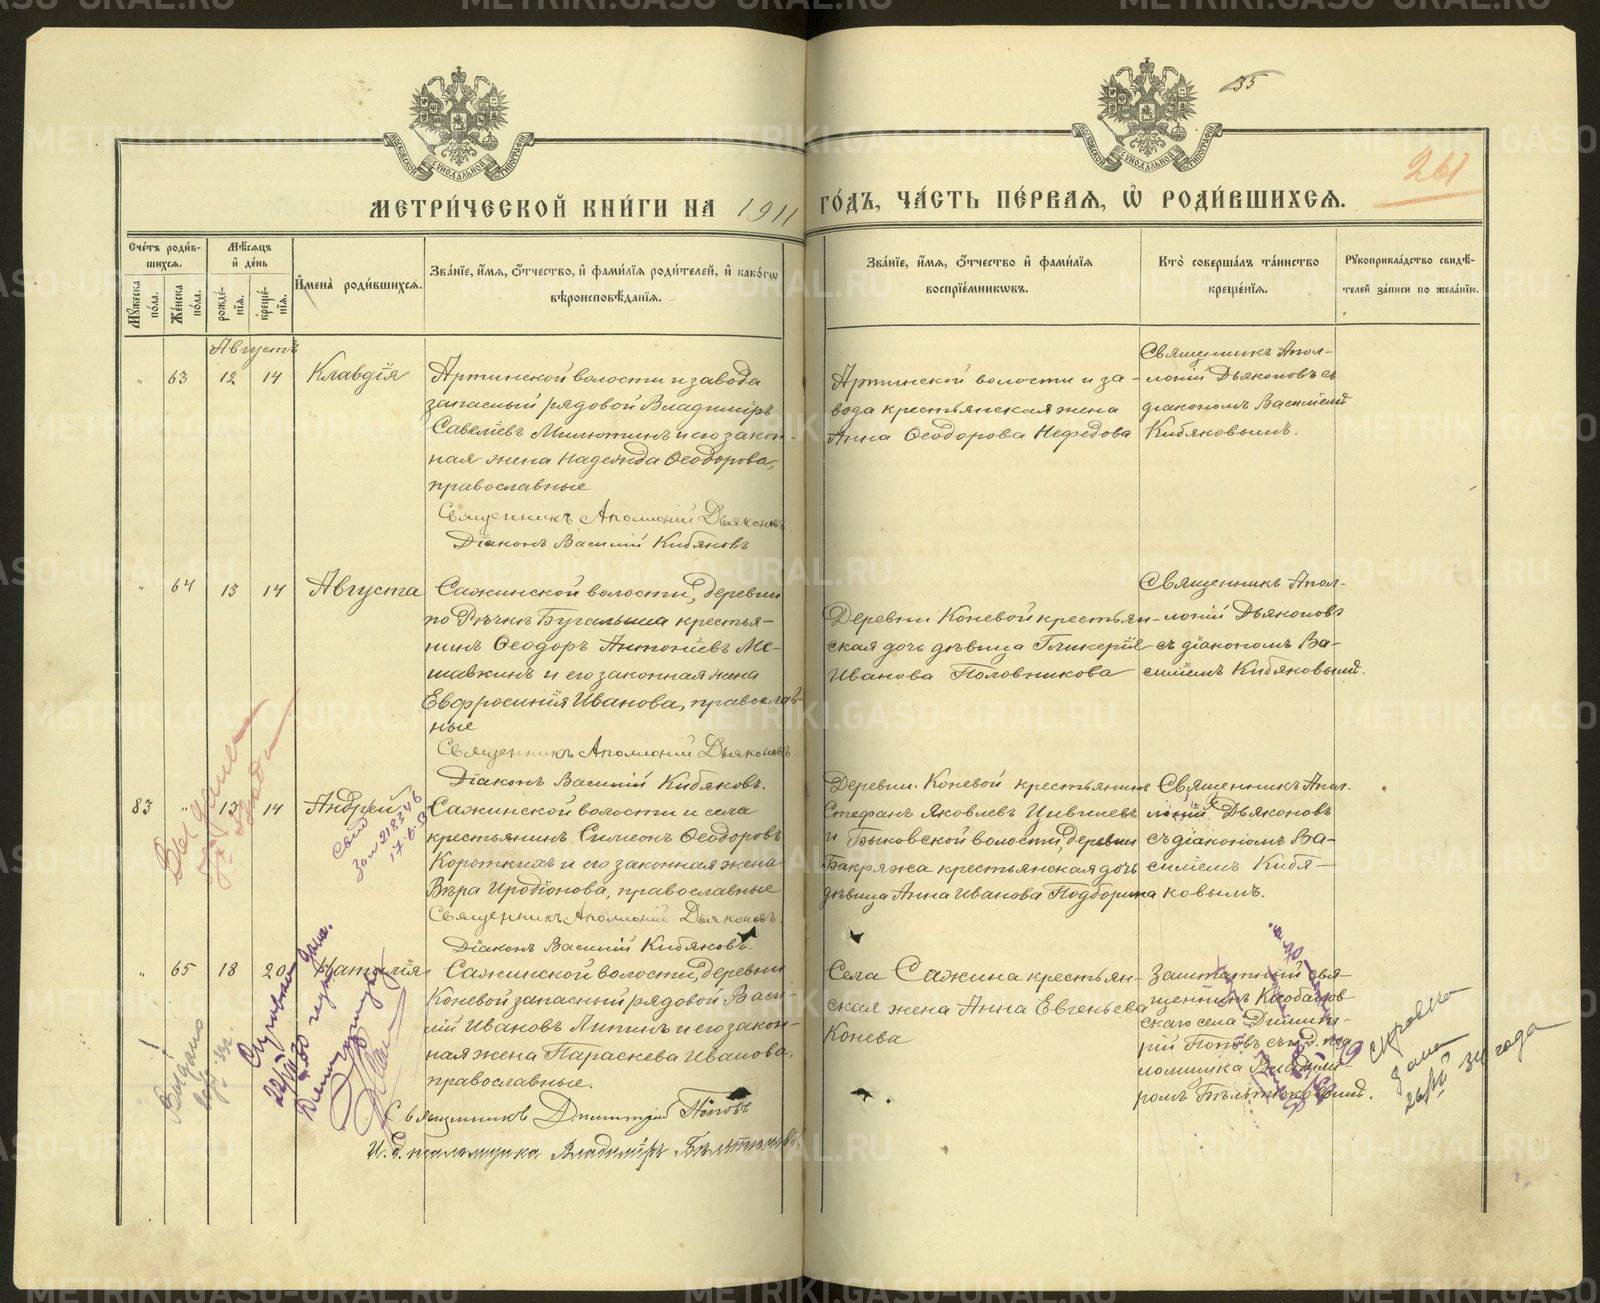 35
261
МЕТРИЧЕСКОЙ КНИГИ НА 1911 ГОДЪ, ЧАСТЬ ПЕРВАЯ, Ѡ РОДИВШИХСЯ.
Счетъ родившихся.
Мужеска пола.
Женска пола.
Мѣсяцъ и день
рожденія.
крещенія.
Имена родившихся.
Званіе, имя, отчество, и фамилія родителей, и какогѡ
вѣроисповѣданія.
Званіе, имя, отчество и фамилія
воспріемникѡвъ.
Кто совершалъ таинство
крещенія.
Рукоприкладство свидѣ-
телей записи по желанію.
Августъ
" 63 12 14 Клавдія
Артинской волости и завода
запасный рядовой Владиміръ
Савеліевъ Милютинъ и его закон-
ная жена Надежда Ѳеодорова,
православные
Священникъ Аполлоній Дьяконовъ
Діаконъ Василій Кибяковъ
Артинской волости и за-
вода крестьянская жена
Анна Ѳеодорова Нефедова
Священникъ Апол-
лоній Дьяконовъ съ
діакономъ Василіемъ
Кибяковымъ.
" 64 13 14 Августа
Сажинской волости, деревни
по Рѣчкѣ Бугалыша крестья-
нинъ Ѳеодоръ Антоніевъ Ме-
шавкинъ и его законная жена
Евфросинія Иванова, православ-
ные
Священникъ Аполлоній Дьяконовъ.
Діаконъ Василій Кибяковъ.
Деревни Коневой крестьян-
ская дочь дѣвица Гликерія
Иванова Половникова
Священникъ Апол-
лоній Дьяконовъ
съ діакономъ Ва-
силіемъ Кибяковымъ.
83 " 13 14 Андрей
Сажинской волости и села
крестьянинъ Симеонъ Ѳеодоровъ
Короткихъ и его законная жена
Вѣра Иродіонова, православные
Священникъ Аполлоній Дьяконовъ.
Діаконъ Василій Кибяковъ.
Деревни Коневой крестьянинъ
Стефанъ Яковлевъ Цивилевъ
и Быковской волости, деревни
Бакряжа крестьянская дочь
дѣвица Анна Иванова Подборина
Священникъ Апол-
лоній Дьяконовъ
съ діакономъ Ва-
силіемъ Кибя-
ковымъ.
" 65 18 20 Наталія
Сажинской волости, деревни
Коневой запасный рядовой Васи-
лій Ивановъ Липинъ и его закон-
ная жена Параскева Иванова,
православные.
Священникъ Димитрій Поповъ
И. д. псаломщика Владиміръ
Села Сажина крестьян-
ская жена Анна Евгеньева
Конева
Заштатный свя-
щенникъ
скаго села Димит-
рій Поповъ съ и. д. пса-
ломщика Владимі-
ромъ
Справка
дана
34 года
METRIKI.GASO-URAL.RU